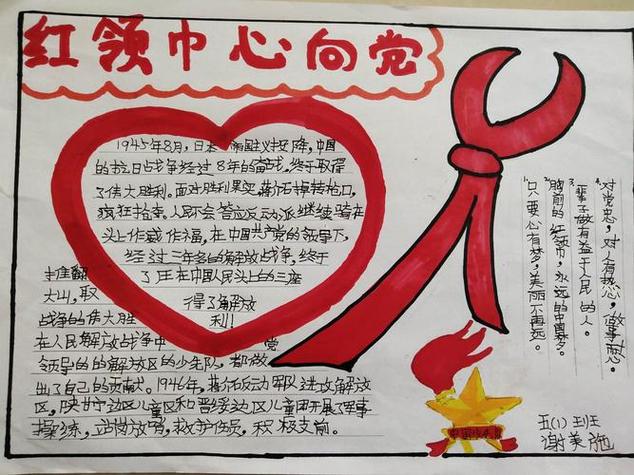 红领巾心向党
1945年8月，日本帝国主义投降，中国
的抗日战争经过8年的奋战，终于取得
了伟大胜利。面对胜利果实，蒋介石掉转枪口，
疯狂抢夺。人民不会答应反动派继续骑在
头上作威作福，在中国共产党的领导下，
经过三年多的解放战争，终于
推翻 了压在中国人民头上的三座
大山，取 得了解放
战争的伟大胜 利！
在人民解放战争中 党
领导的的解放区的少先队，都做
出了自己的贡献。1946年，蒋介石反动军队进攻解放
区，陕甘宁边区儿童团和晋绥边区儿童团开展了军事
操练，站岗放哨，救护伤员，积极支前。
对党忠，对人有热心，做事耐心。
一辈子做有益于人民的人。
胸前的红领巾，永远的中国梦。
只要心有梦，美丽不再远。
五(1)班
谢美施